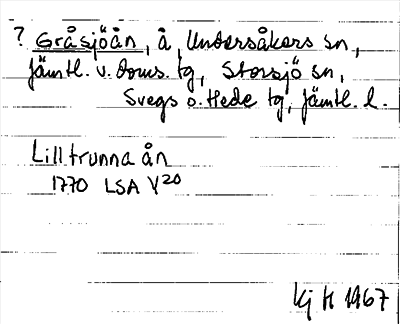 ? Gråsjöån, å, Undersåkers sn,
Jämtl. v. doms. tg, Storsjö sn,
Svegs o. Hede tg, Jämtl. l.
Lilltrunna ån
1770 LSA V20
Kj H 1967